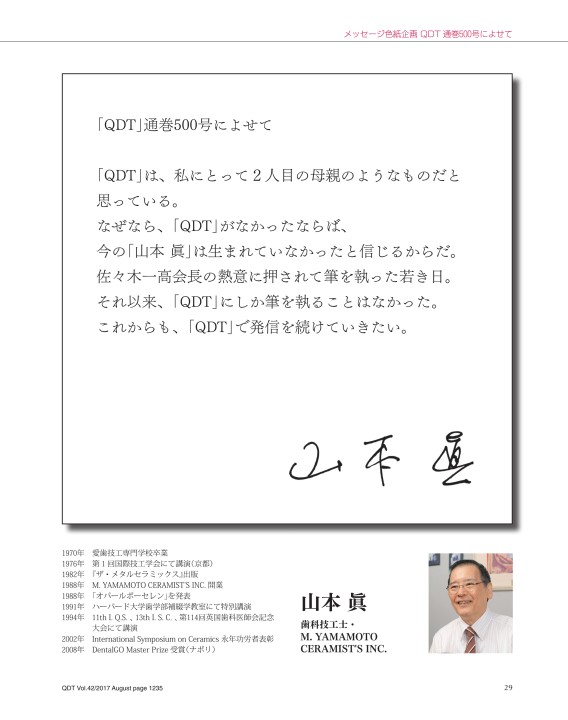 メッセージ色紙企画 QDT 通巻500号によせて
「QDT」通巻500号によせて
「QDT」は、私にとって２人目の母親のようなものだと
思っている。
なぜなら、「QDT」がなかったならば、
今の「山本 眞」は生まれていなかったと信じるからだ。
佐々木一高会長の熱意に押されて筆を執った若き日。
それ以来、「QDT」にしか筆を執ることはなかった。
これからも、「QDT」で発信を続けていきたい。
山本 眞
1970年 愛歯技工専門学校卒業
1976年 第１回国際技工学会にて講演（京都）
1982年 『ザ・メタルセラミックス』出版
1988年 M. YAMAMOTO CERAMIST'S INC. 開業
1988年 「オパールポーセレン」を発表
1991年 ハーバード大学歯学部補綴学教室にて特別講演
1994年 11th I. Q.S. 、13th I. S. C. 、第114回英国歯科医師会記念
大会にて講演
2002年 International Symposium on Ceramics 永年功労者表彰
2008年 DentalGO Master Prize 受賞（ナポリ）
山本 眞
歯科技工士・
M. YAMAMOTO
CERAMIST'S INC.
QDT Vol.42/2017 August page 1235
29